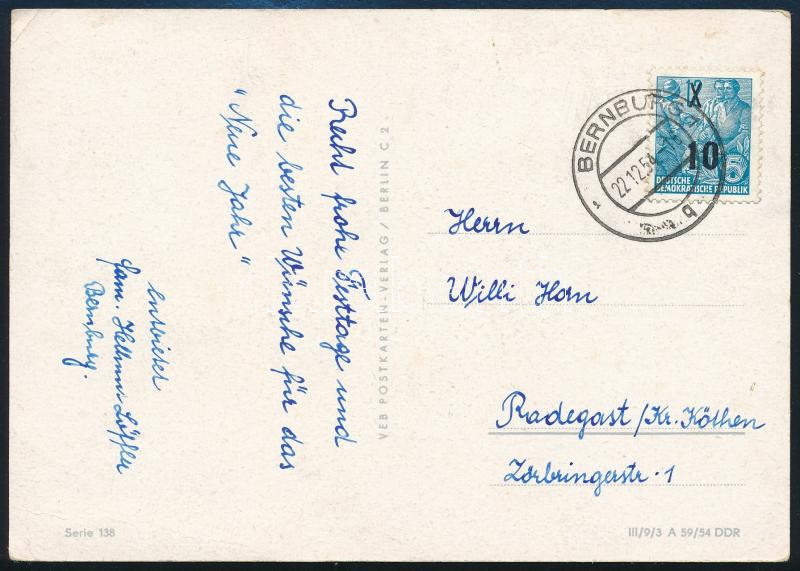 Recht frohe Festtage und
die besten Wünsche für das
"Neue Jahr"
entbietet
Fam. Hellmut Löffler
Bernburg.
VEB POSTKARTEN-VERLAG / BERLIN C 2
BERNBURG
22.12.54
b
12
10
5
DEUTSCHE
DEMOKRATISCHE REPUBLIK
Herrn
Willi Horn
Radegast /Kr. Köthen
Zörbringerstr. 1
Serie 138
III/9/3 A 59/54 DDR